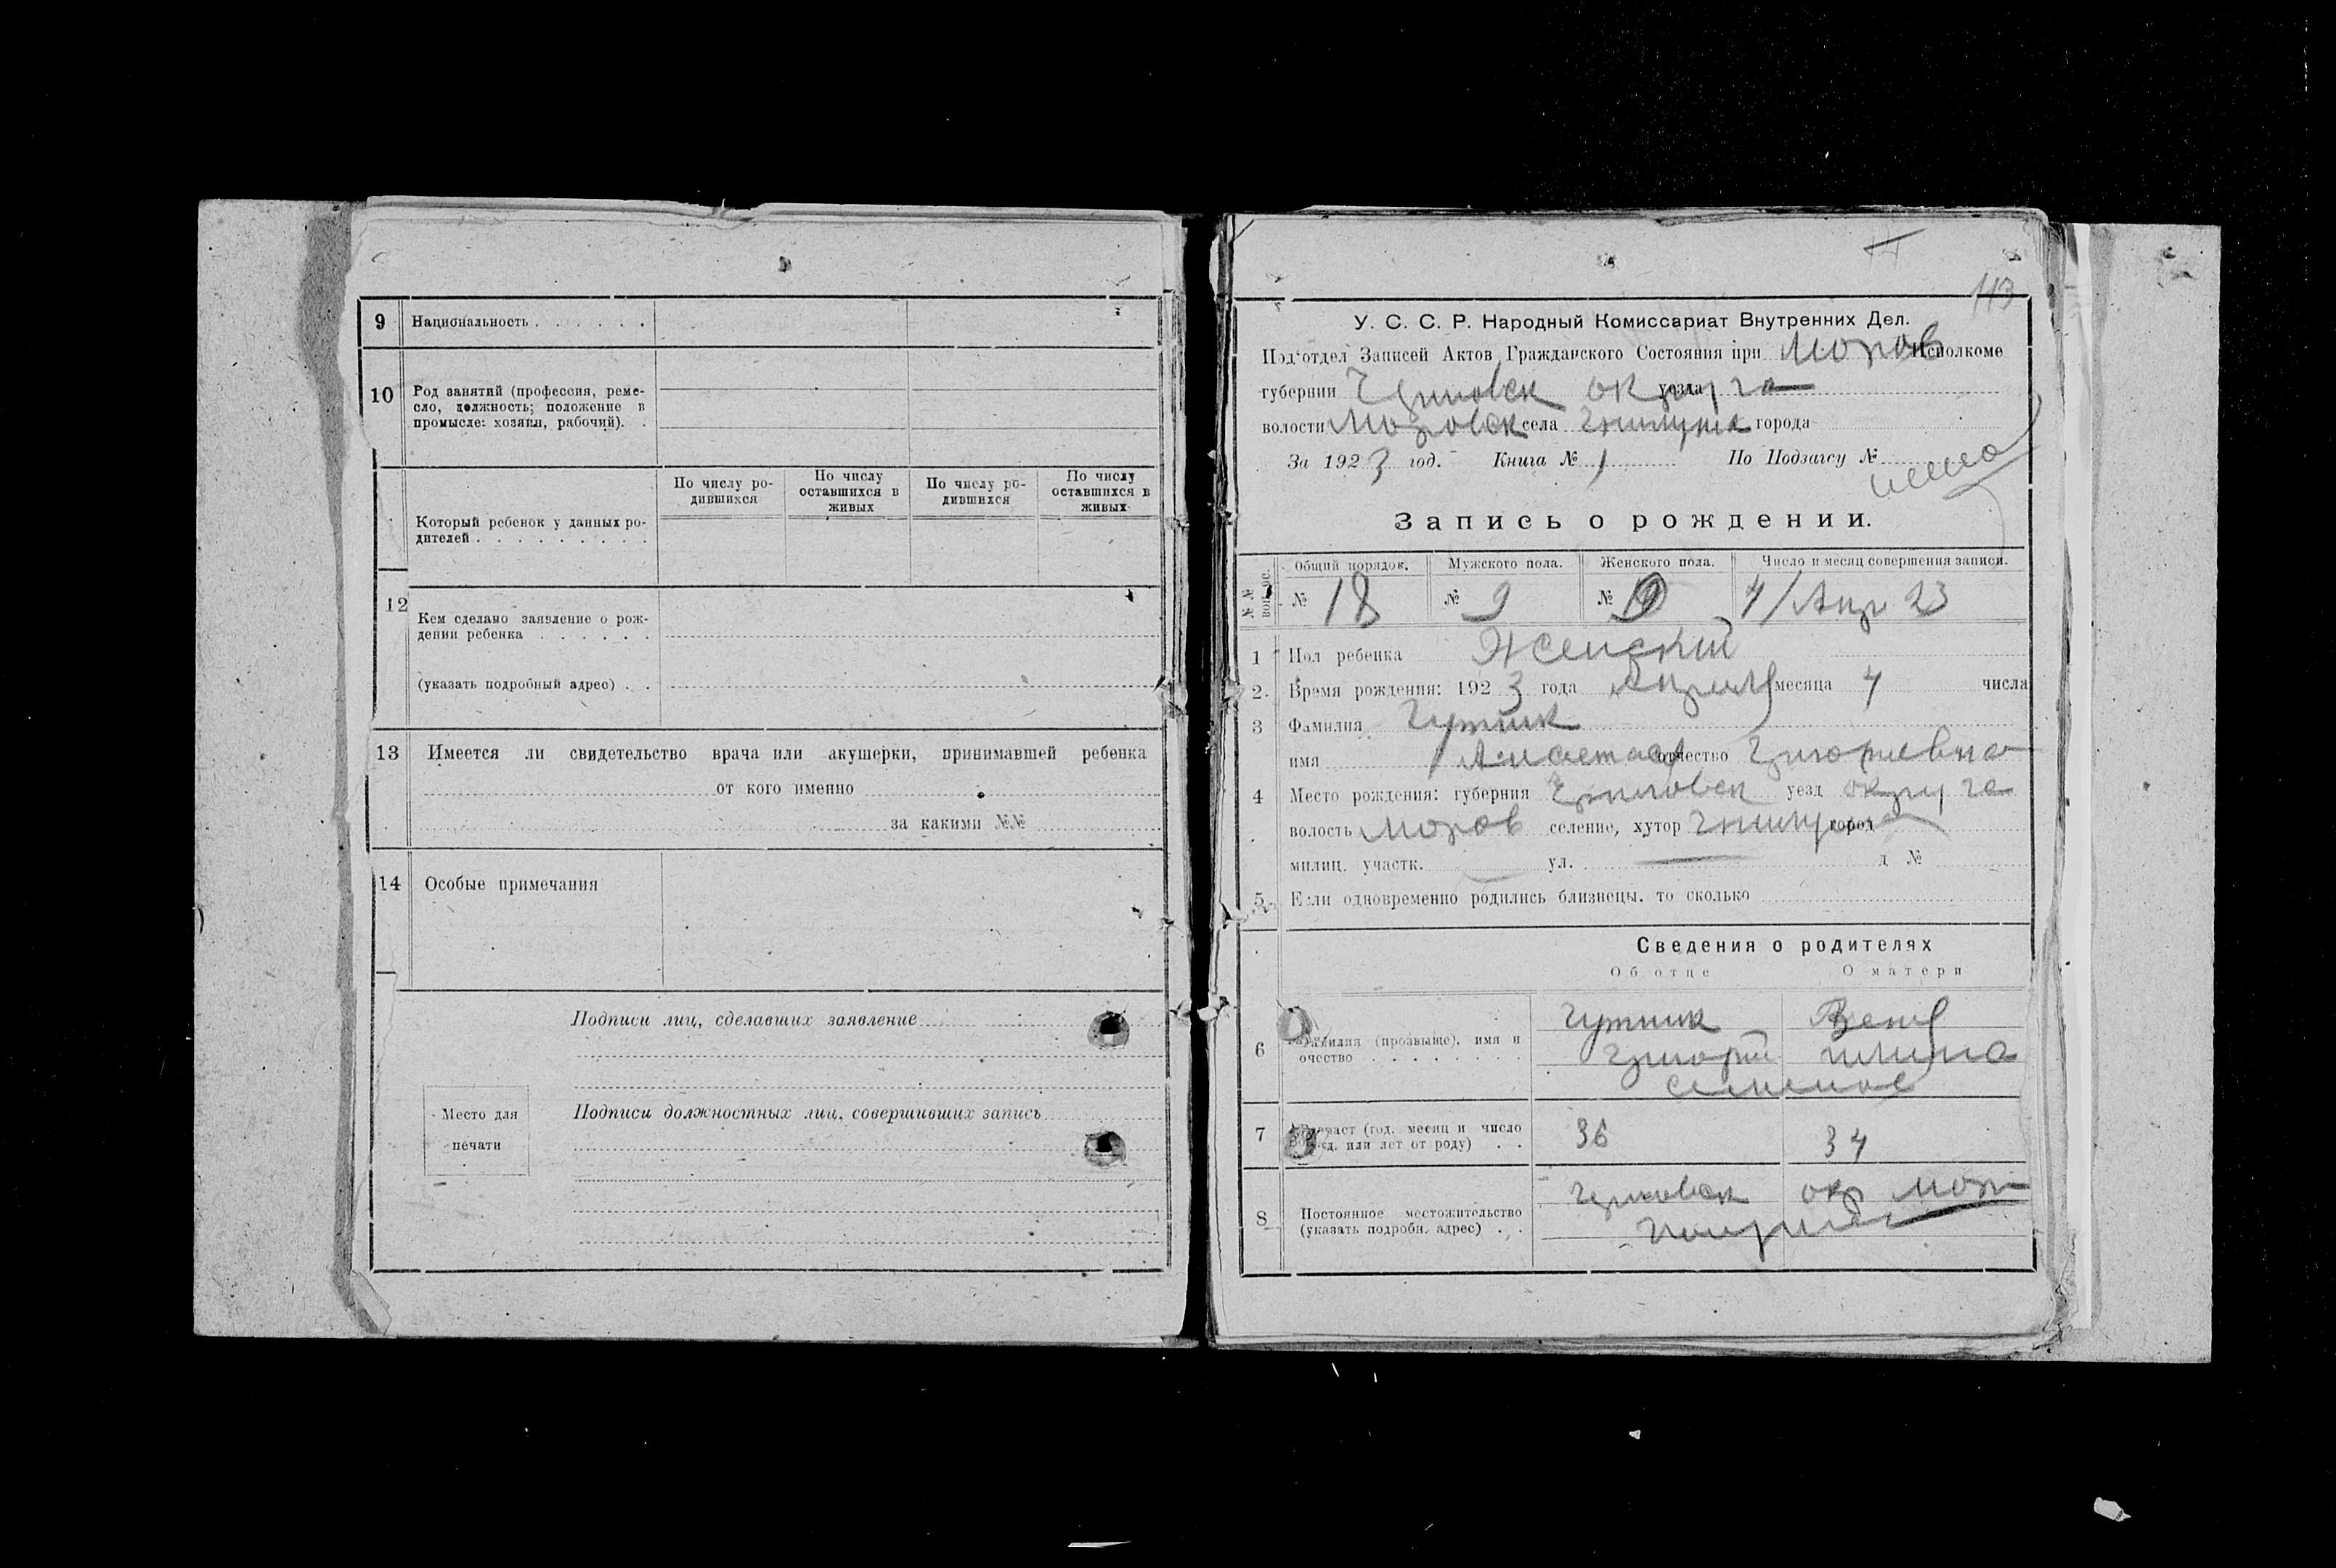 9 Национальность . . . . . .
10 Род занятий (профессия, реме-
сло, должность; положение в
промысле: хозяин, рабочий). .
По числу ро-
дившихся
По числу
оставшихся в
живых
По числу ро-
дившихся
По числу
оставшихся в
живых
Который ребенок у данных ро-
дителей . . . . . . . . .
12 Кем сделано заявление о рож-
дении ребенка . . . . . .
(указать подробный адрес) . .
13 Имеется ли свидетельство врача или акушерки, принимавшей ребенка
от кого именно
за какими №№
14 Особые примечания
Подписи лиц, сделавших заявление
Подписи должностных лиц, совершивших запись
Место для
печати
113
У. С. С. Р. Народный Комиссариат Внутренних Дел.
Под'отдел Записей Актов Гражданского Состояния при Моров Исполкоме
губернии уезда округа
волости Моровск села города
За 1923 год. Книга № 1 По Подзагсу №
Запись о рождении.
№№ вопрос. Общий порядок. Мужского пола. Женского пола. Число и месяц совершения записи.
№ 18 № 9 № 9 4/Апр 23
1 Пол ребенка Женский
2. Время рождения: 1923 года Апреля месяца 4 числа
3 Фамилия Гутник
имя отчество Григориевна
4 Место рождения: губерния уезд округа
волость Моров селение, хутор город
милиц. участк. ул. — д №
5 Если одновременно родились близнецы, то сколько
Сведения о родителях
Об отце О матери
6 Фамилия (прозвище), имя и
очество . . . . . . . .
Гутник
Григорий
7 Возраст (год, месяц и число
рожд. или лет от роду) . .
36 34
8 Постоянное местожительство
(указать подробн. адрес) . .
окр Мор